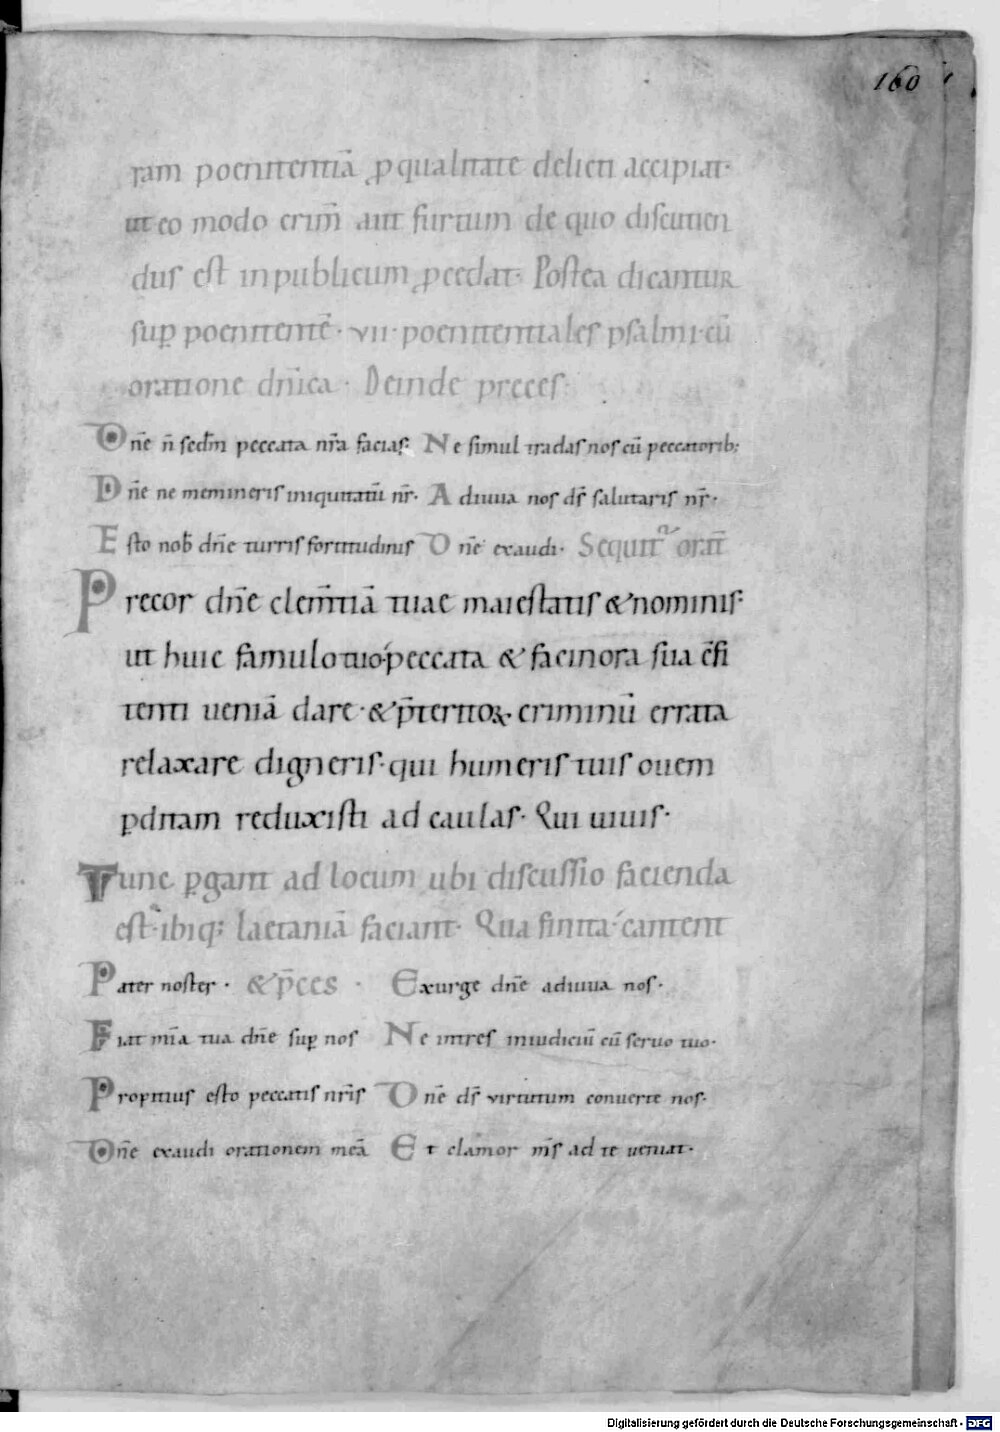 160
ram poenitentiā ꝓ qualitate delicti accipiat·
ut eo modo crim̄ aut furtum de quo discutien
dus est in publicum ꝓcedat· Postea dicantur
suꝑ poenitentē · vii · poenitentiales psalmi cū
oratione dn̄ica · Deinde preces·
Dn̄e n̄ secdm̄ peccata nr̄a facias· Ne simul tradas nos cū peccatorib;
Dn̄e ne memineris iniquitatū nr̄· Adiuua nos ds̄ salutaris nr̄·
Esto nob̄ dn̄e turris fortitudinis Dn̄e exaudi· Sequit᷑ orat̄
Precor dn̄e clem̄tiā tuae maiestatis & nominis·
ut huic famulo tuo peccata & facinora sua c̄fi
tenti ueniā dare · & p̄teritoꝝ criminū errata
relaxare digneris· qui humeris tuis ouem
ꝑditam reduxisti ad caulas· Qui uiuis·
Tunc ꝑgant ad locum ubi discussio facienda
est· ibiq; laetaniā faciant· Qua finita cantent
Pater noster · & p̄ces · Exurge dn̄e adiuua nos·
Fiat mīa tua dn̄e suꝑ nos Ne intres iniudiciū cū seruo tuo·
Propitius esto peccatis nr̄is Dn̄e ds̄ virtutum conuerte nos·
Dn̄e exaudi orationem meā Et clamor ms̄ ad te ueniat·
Digitalisierung gefördert durch die Deutsche Forschungsgemeinschaft - DFG